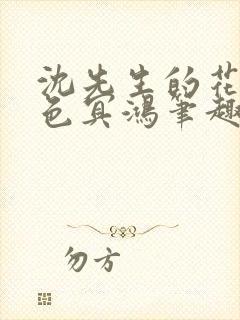 沈先生的花
色冥鸿笔趣
勿方